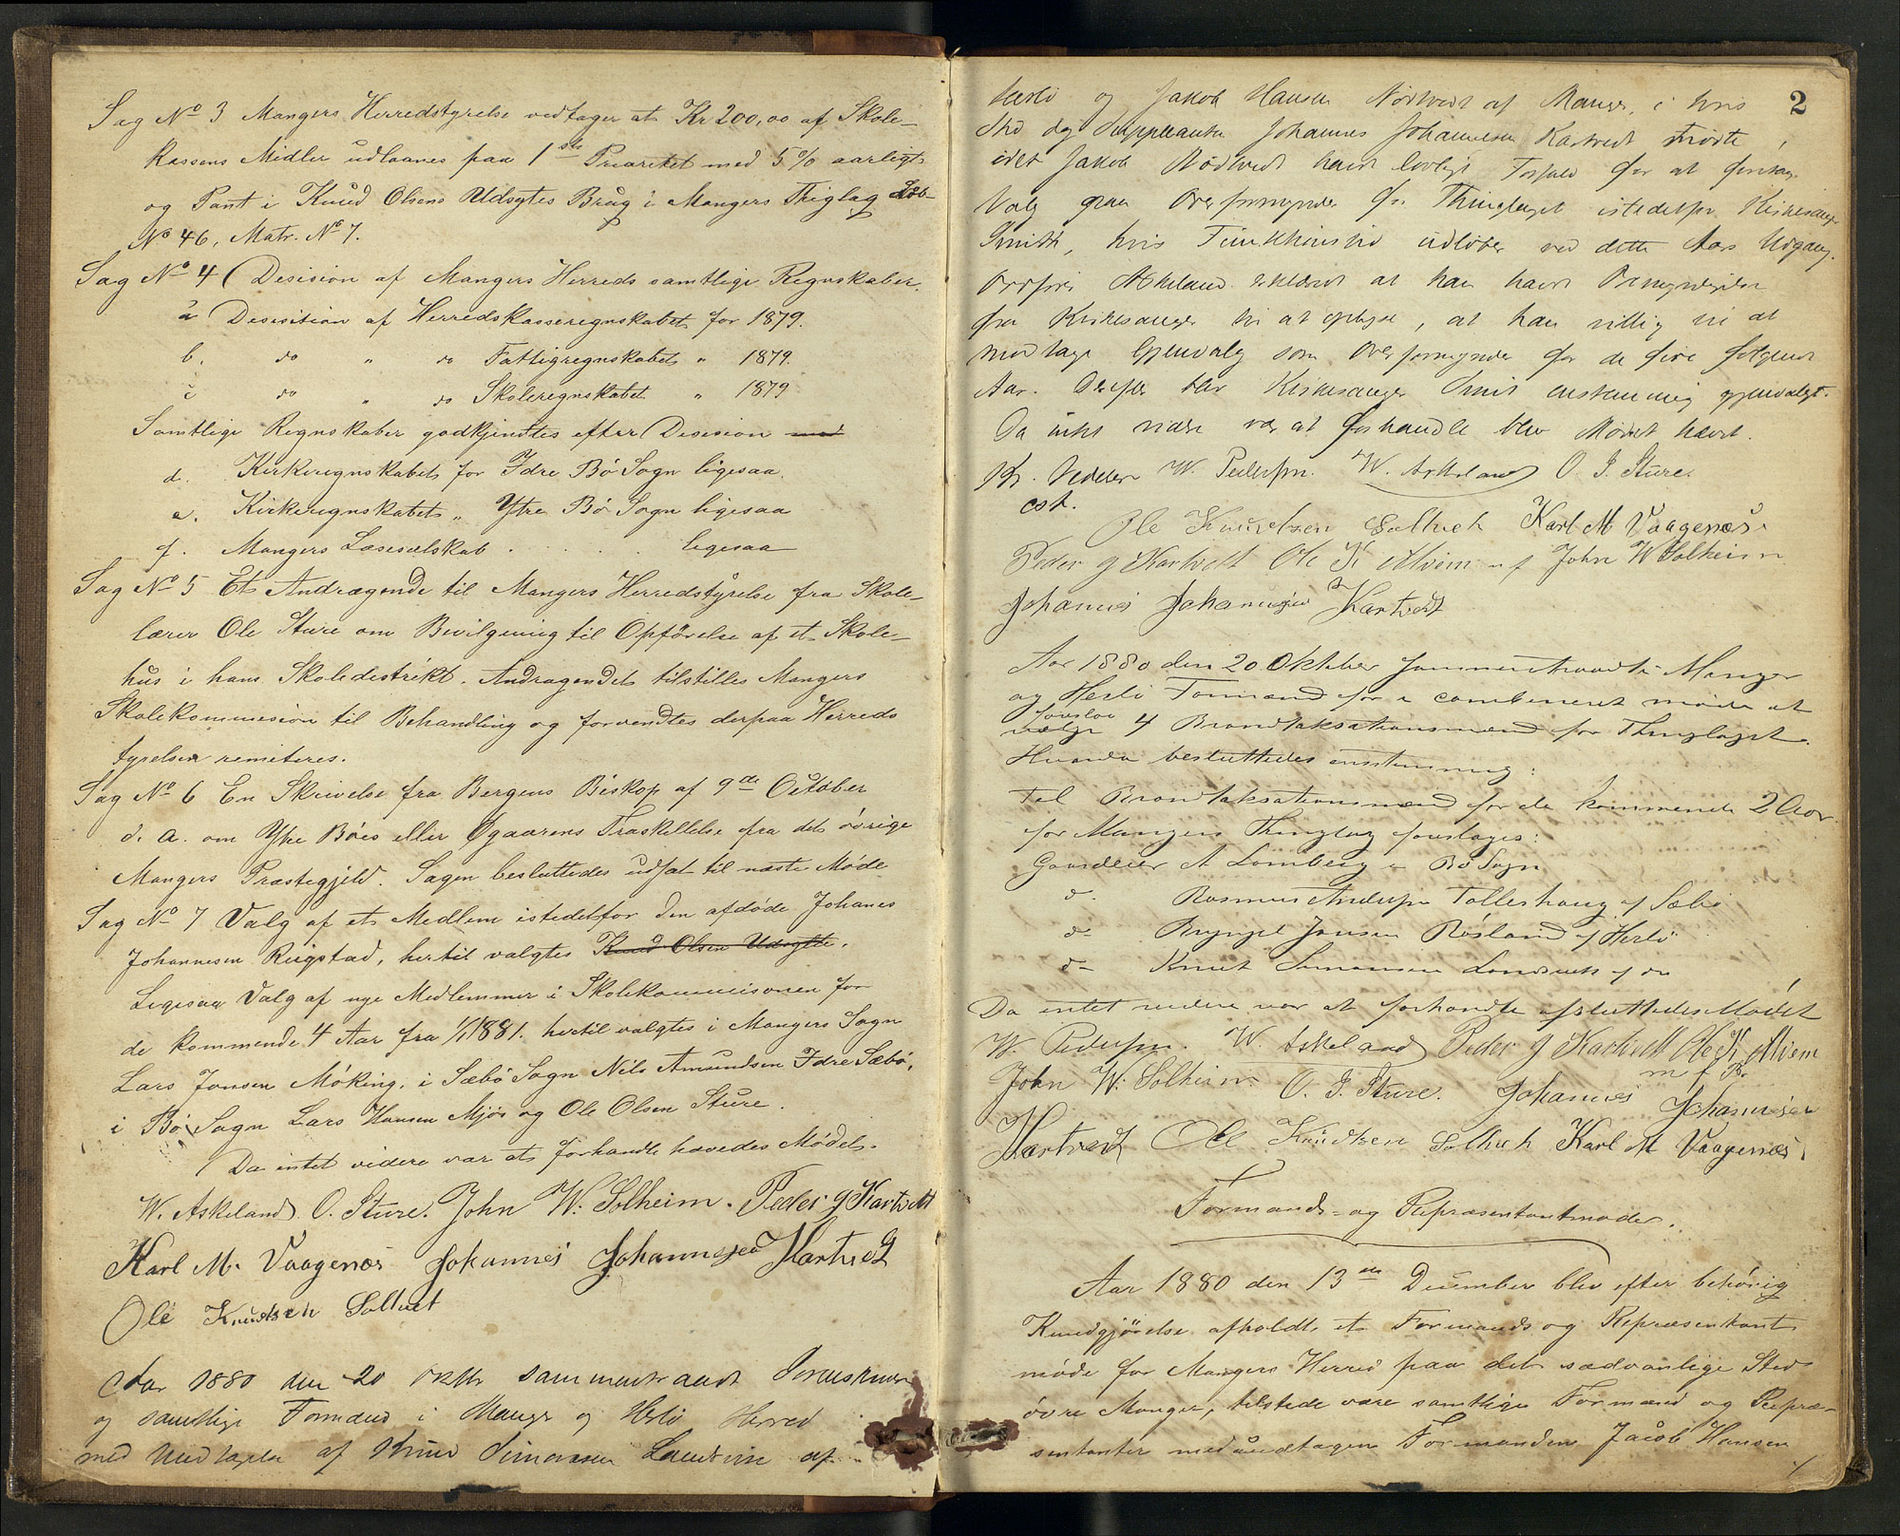 Sag No 3 Mangers Herredstyrelse vedtager at Kr 200,00 af Skole-
kassens Midler udlaanes paa 1ste Prioritet med 5% aarligt
og Pant i Knud Olsens Udsytes Brug i Mangers Thiglag Løb-
No 46, Matr. No 7.
Sag No 4 Desision af Mangers Herreds samtlige Regnskaber.
a Desisition af Herredskasseregnskabet for 1879.
b. do " do Fattigregnskabet " 1879.
c do " do Skoleregnskabet " 1879
Samtlige Regnskaber godkjendtes efter Desision med
d. Kirkeregnskabet for Idre Bø Sogn ligesaa.
e. Kirkeregnskabet " Ytre Bø Sogn ligesaa
f. Mangers Læseselskab . . . . . ligesaa
Sag No 5 Et Andragende til Mangers Herredstyrelse fra Skole-
lærer Ole Sture om Bevilgning til Opførelse af et Skole-
hus i hans Skoledestrikt. Andragendet tilstilles Mangers
Skolekommission til Behandling og forventes derpaa Herreds
tyrelsen remiteres.
Sag No 6 En Skrivelse fra Bergens Biskop af 9de October
d. a. om Ytre Bøes eller Øgaarens Fraskillelse fra det øvrige
Mangers Præstegjeld. Sagen besluttedes udsat til næste Møde
Sag No 7 Valg af et Medlem istedetfor den afdøde Johanes
Johannesen Rigstad, hertil valgtes Knud Olsen Udsytte.
Ligesaa Valg af nye Medlemmer i Skolekommisionen for
de kommende 4 Aar fra 1/1 1881. hertil valgtes i Mangers Sogn
Lars Jonsen Møking, i Sæbø Sogn Nils Amundsen Idre Sæbø,
i Bø Sogn Lars Hansen Mjøs og Ole Olsen Sture.
Da intet videre var at forhandle hævedes Mødet.
W. Askeland O. Sture. John W: Solheim. Peder J Kartvedt
Karl M. Vaagenæs Johannes Johannesen Kartvedt
Ole Knudsen Soltvet
Aar 1880 den 20 Oktbr sammentraadt
og samtlige Formænd i Manger og Herlø Herred
med Undtagelse af Knud Simonsen Landsvik af
2
Herlø og Jakob Hansen Nødtvedt af Manger, i hvis
Sted dog Suppleanten Johannes Johannesen Kartvedt mødte,
idet Jakob Nødtvedt havde lovligt Forfald for at foretage
Valg paa Overformynder for Thinglaget istedetfor Kirkesanger
Smith, hvis Funktionstid udløber ved dette Aars Udgang.
Ordfører Askeland erklæred at han havde
fra Kirkesanger til at oplyse, at han villig til at
modtage Gjenvalg som Overformynder for de fire følgende
Aar. Derefter blev Kirkesanger Smit enstemmig gjenvalgt.
Da intet videre var at forhandle blev Mødet hævet.
Kr. W. Pedersen. W. Askeland O. J. Sture.
cst.
Ole Knudtsen Soltvedt Karl M Vaagenæs.
Peder J Kartvedt Ole K Alvem mf John W Solheim
Johannes Johannesen Kartvedt
Aar 1880 den 20 Oktober sammentraadte Manger
og Herlø Formænd for i combineret møde at
foreslaa
vælge 4 Brandtaksationsmænd for Thinglaget.
Hvorda besluttedes enstemmig:
Til Brandtaksationsmænd for de kommende 2 Aar
for Mangers Thinglag foreslages:
Gaardeier A Lomberg i Bø Sogn
do. Rasmus Andersen Tolleshaug af Sæbø
do Brynjel Jonsen Røsland af Herlø
do Knut Simonsen Landsvik af do
Da intet videre var at forhandle afsluttedes Mødet
W. Pedersen. W. Askeland Peder J Kartvedt Ole K Alvem
m f P.
John W: Solheim. O. J. Sture. Johannes Johannesen
Kartvedt Ole Knudtsen Soltvedt Karl M Vaagenæs.
Formands- og Repræsentantmøder.
Aar 1880 den 13de December blev efter behørig
Kundgjørelse afholdt et Formands og Repræsentant
møde for Mangers Herred paa det sædvanlige Sted
øvre Manger, tilstede vare samtlige Formænd og Repræ-
sentanter med undtagen Formanden Jacob Hansen